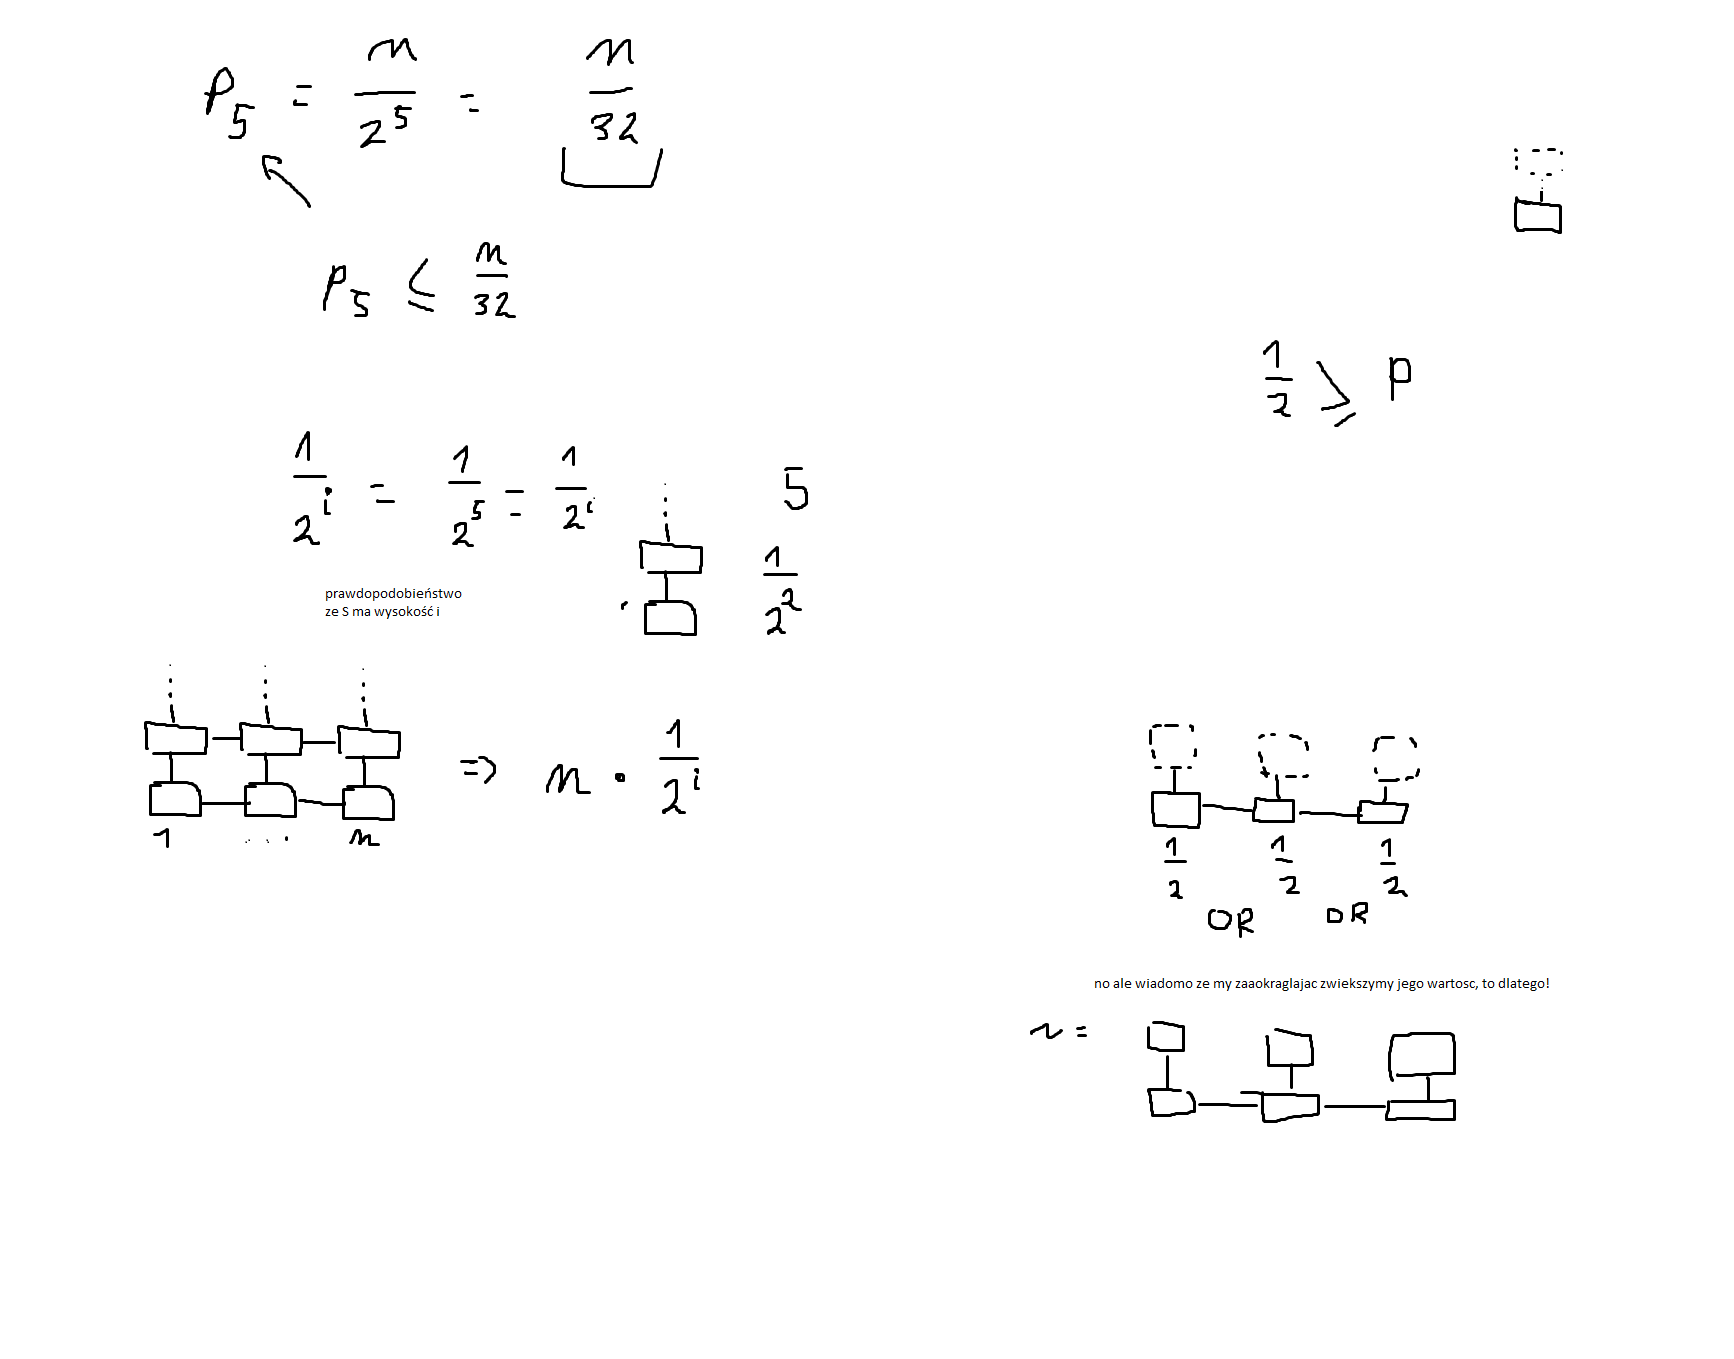 P₅ = n/2⁵ = n/32
P₅ ≤ n/32
1/2 ≥ P
1/2ⁱ = 1/2⁵ = 1/2ⁱ
5
1/2²
prawdopodobieństwo
ze S ma wysokość i
1 .... n
=> n · 1/2ⁱ
1/2 1/2 1/2
OR OR
no ale wiadomo ze my zaaokraglajac zwiekszymy jego wartosc, to dlatego!
~ =